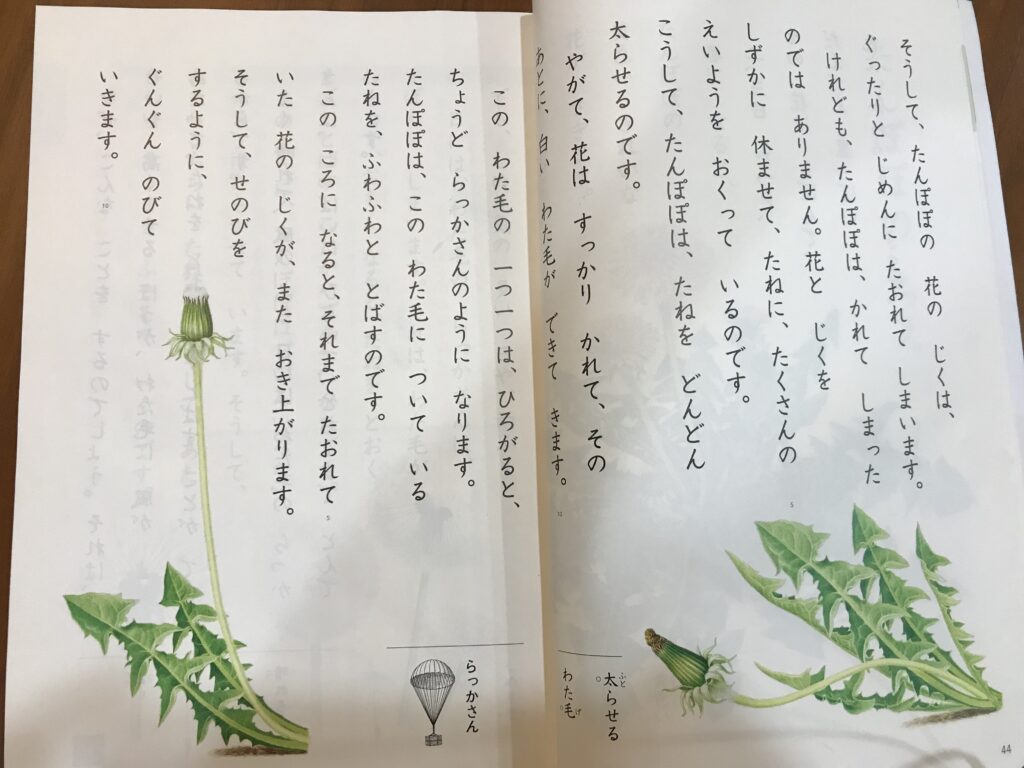 そうして、たんぽぽの 花の じくは、
ぐったりと じめんに たおれて しまいます。
けれども、たんぽぽは、かれて しまった
のでは ありません。花と じくを
しずかに 休ませて、たねに、たくさんの
えいようを おくって いるのです。
こうして、たんぽぽは、たねを どんどん
太らせるのです。
やがて、花は すっかり かれて、その
あとに、白い わた毛が できて きます。
5
10
太らせる
ぶと
わた毛
げ
44
この、わた毛の 一つ一つは、ひろがると、
ちょうど らっかさんのように なります。
たんぽぽは、この わた毛に ついて いる
たねを、ふわふわと とばすのです。
この ころに なると、それまで たおれて
いた 花のじくが、また おき上がります。
そうして、せのびを
するように、
ぐんぐん のびて
いきます。
5
10
らっかさん